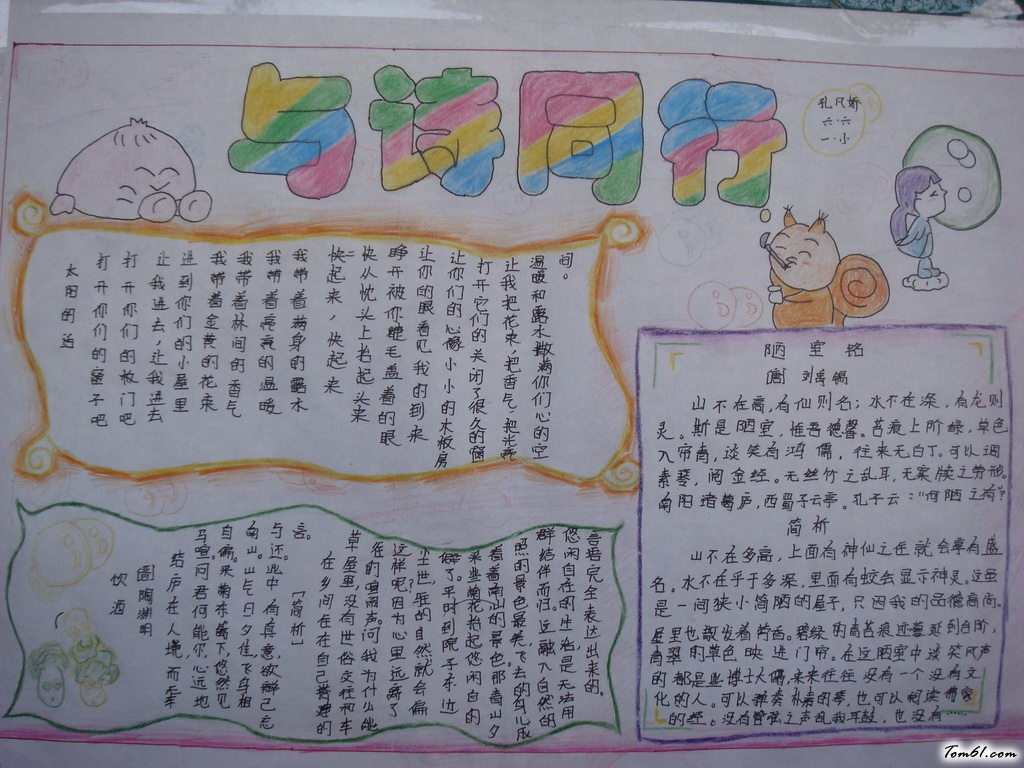 与诗同行
孔凡娇
六·六
一·小
太阳的话
打开你们的窗子吧
打开你们的板门吧
让我进去,让我进去
进到你们的小屋里
我带着金黄的花束
我带着林间的香气
我带着亮亮的温暖
我带着满身的露水
快起来,快起来
快从枕头上抬起头来
睁开被你睫毛盖着的眼
让你的眼看见我的到来
让你们的心像小小的木板房
打开它们的关闭了很久的窗
让我把花束,把香气,把光亮
温暖和露水撒满你们心的空
间。
陋室铭
[唐] 刘禹锡
山不在高,有仙则名;水不在深,有龙则
灵。斯是陋室,惟吾德馨。苔痕上阶绿,草色
入帘南,谈笑有鸿儒,往来无白丁。可以调
素琴,阅金经。无丝竹之乱耳,无案牍之劳形。
南阳诸葛庐,西蜀子云亭。孔子云:"何陋之有?
简析
山不在多高,上面有神仙之住就会享有盛
名。水不在乎于多深,里面有蛟会显示神灵。这虽
是一间狭小简陋的屋子,只因我的品德高尚。
屋里也散发着芳香。碧绿的青苔痕迹蔓延到台阶,
青翠的草色映进门帘。在这陋室中谈笑风声
的都是些博士大儒,来来往往没有一个没有文
化的人。可以弹奏朴素的琴,也可以阅读佛家
的经。没有管弦之声乱我耳鼓,也没有……
饮酒
陶渊明
结庐在人境而车
马喧问君何能尔心远地
自偏。采菊东篱下,悠然见
南山。山气日夕佳,飞鸟相
与还。此中有真意欲辩已忘
言。
[简析]
在乡间住在自己搭建的
草屋里,没有世俗交往和车
在的喧闹声。问我为什么能
这样呢?因为心里远离了
尘世,住的自然就会偏
僻了。平时到院子东边
采些菊花抬起悠闲自的
看着南山的景色那看山夕
照的景色最美,飞去的鸟儿成
群结伴而归。这融入自然的
悠闲自在的生活,是无法用
言语完全表达出来的。
Tom61.com